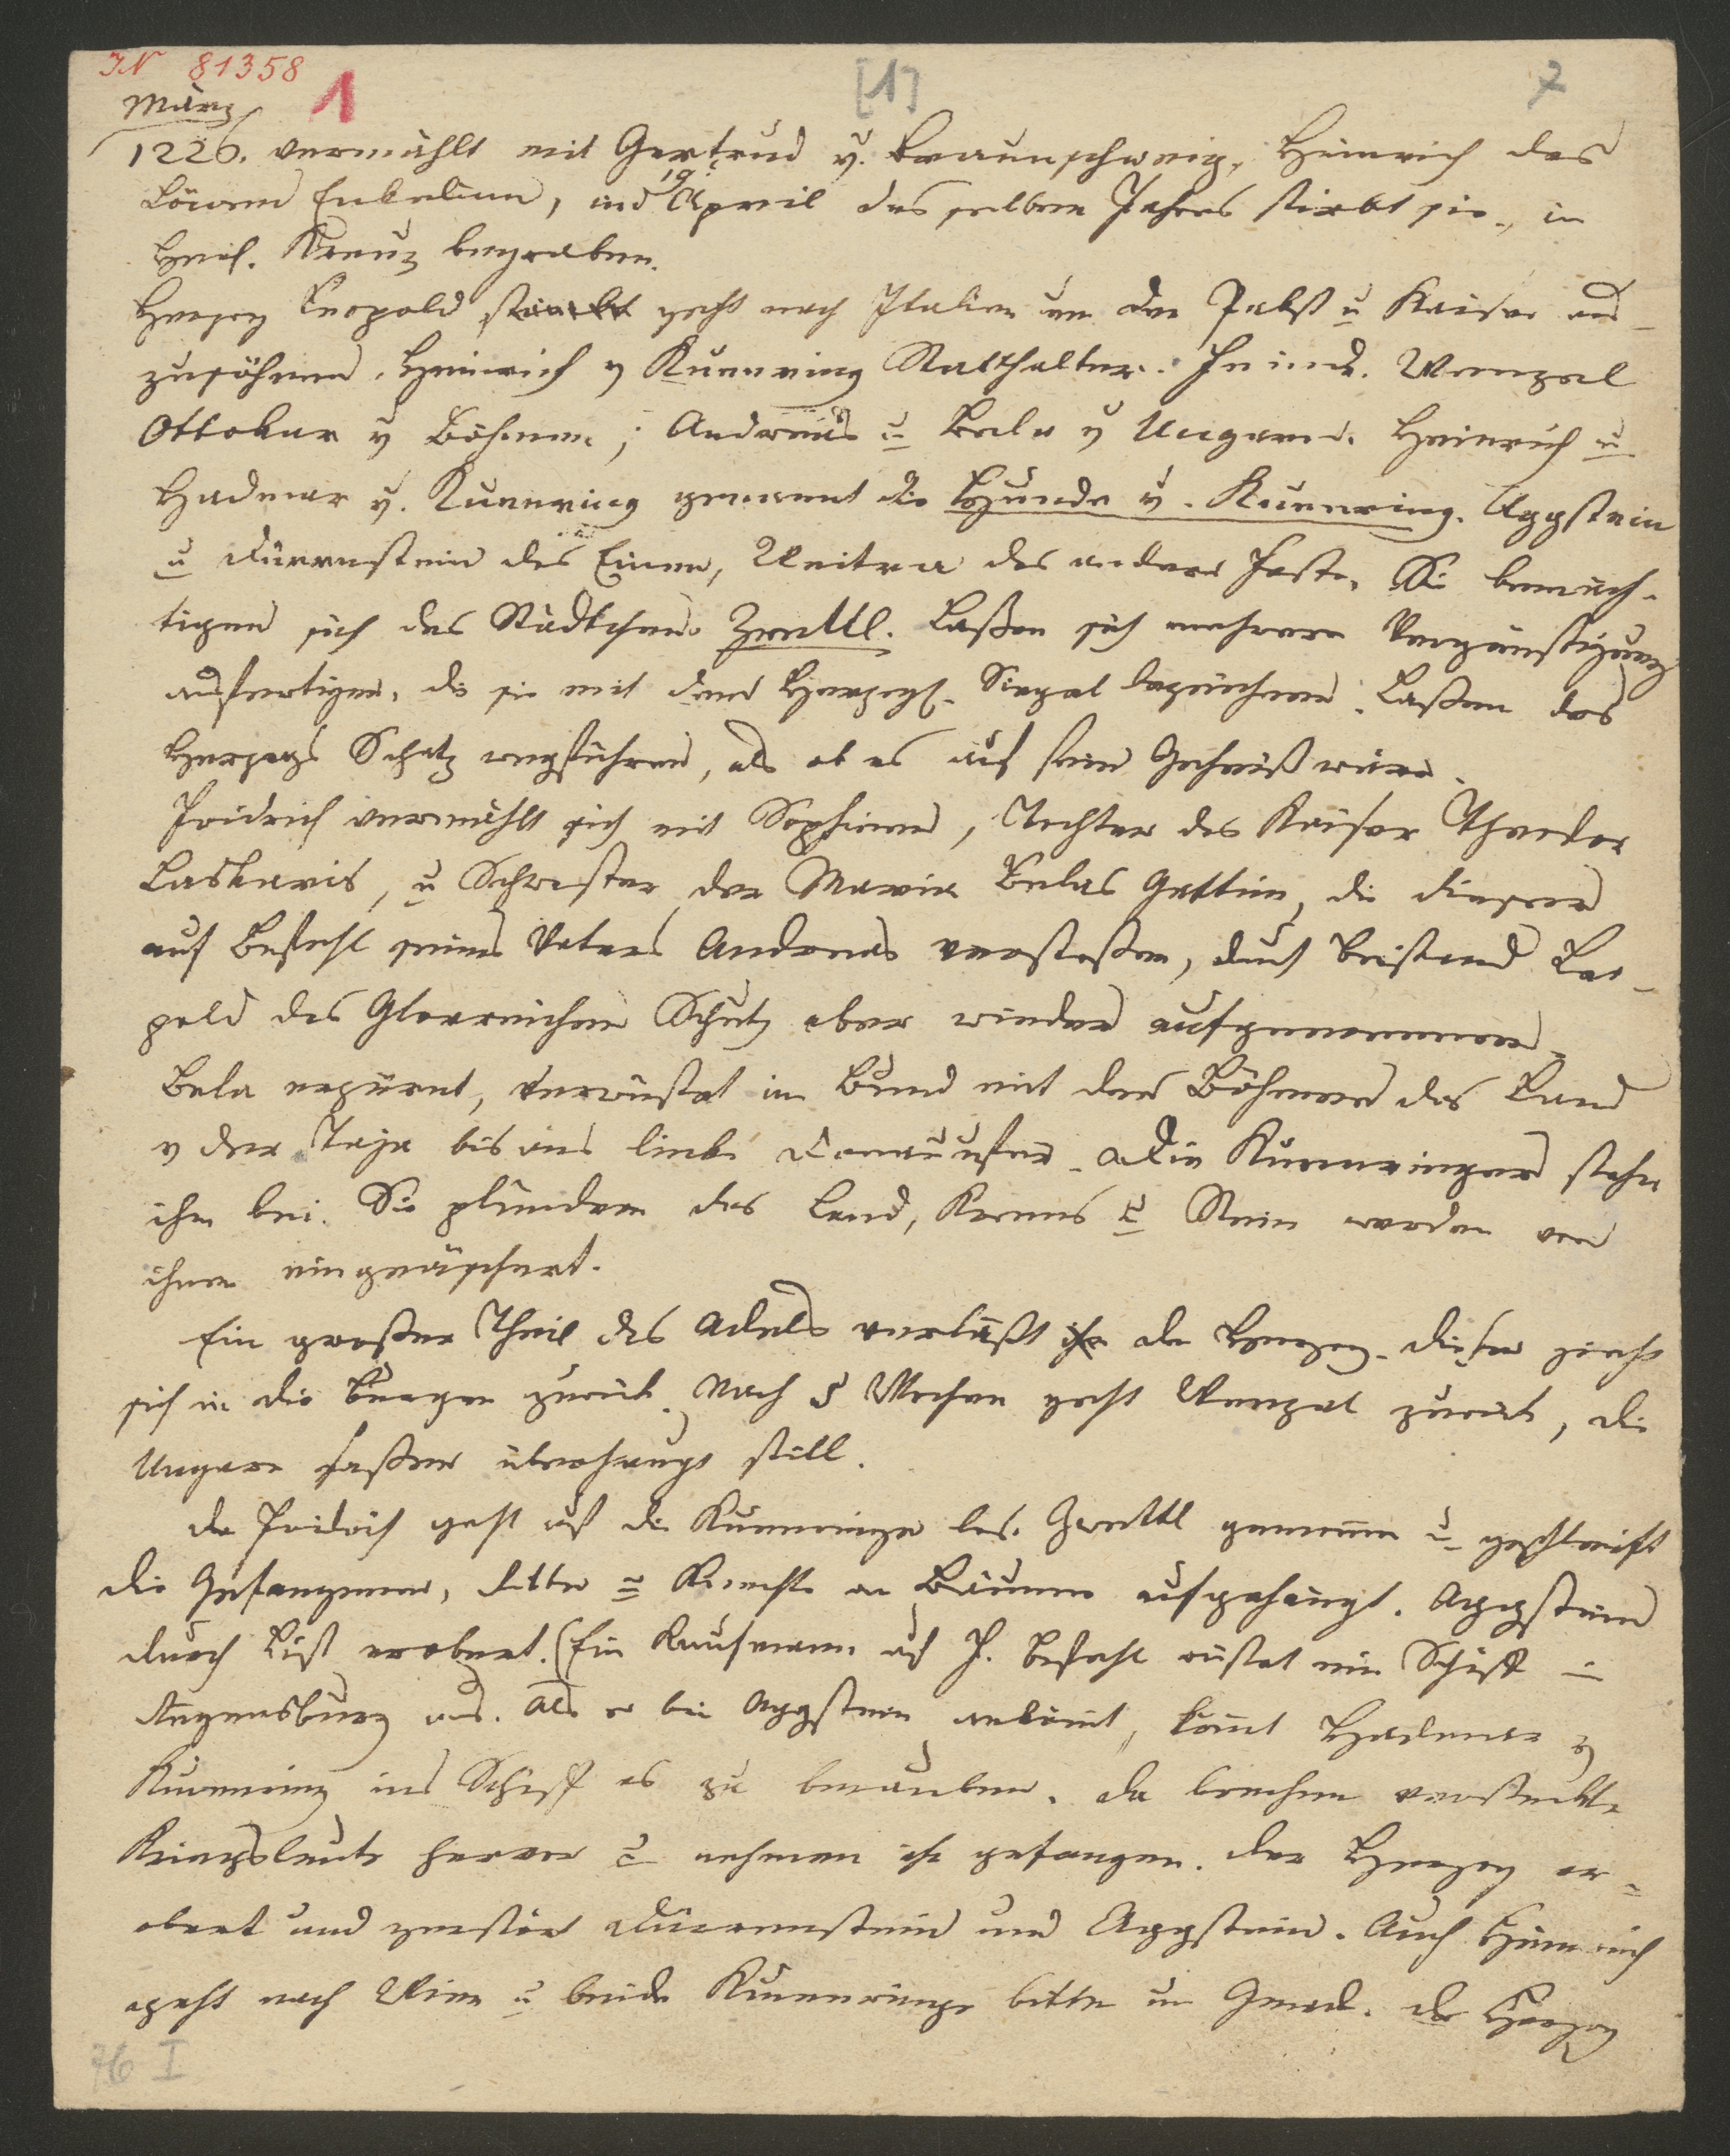 IN 81358
1 [1] 7
März
1226. vermählt mit Gertrud v. Braunschweig, Heinrich des
Löwen Enkelinn, und 19 April des selben Jahres stirbt sie, in
Heil. Kreuz begraben.
Herzog Leopold stirbt geht nach Italien um den Pabst u Kaiser aus-
zusöhnen. Heinrich v Kuenring Statthalter. Feinde. Wenzel
Ottokar v Böhmen; Andreas u Bela v Ungarn. Heinrich u
Hadmar v. Kuenring genannt die Hunde v. Kuenring. Aggstein
u Dürrenstein des Einen, Weitra des andern Feste. Sie bemäch-
tigen sich des Städtchens Zwettl. Laßen sich mehrere Vergünstigung
ausfertigen, die sie mit dem Herzogl. Siegel bezeichnen. Laßen des
Herzogs Schatz wegführen, als ob es auf sein Geheiß wäre.
Fridrich vermählt sich mit Sophien, Tochter des Kaiser Theodor
Laskaris, u Schwester der Maria Belas Gattin, die dieser
auf Befehl seines Vaters Andreas verstoßen, durch Beistand Leo-
pold des Glorreichen Schutz aber wieder aufgenommen.
Bela erzürnt, verwüstet im Bund mit den Böhmen das Land
v der Taja bis ans linke Donauufer. Die Kuenringer stehn
ihm bei. Sie plündern das Land, Krems u Stein werden von
ihnen eingeäschert.
Ein großer Theil des Adels verläßt ihn den Herzog. Dieser zieht
sich in die Burgen zurük. Nach 5 Wochen geht Wenzel zurük, die
Ungarn saßen überhaupt still.
Da Fridrich geht auf die Kuenringer los. Zwettl genommen u geschleift
die Gefangenen, Ritter u Knechte an Bäumen aufgehängt. Aggstein
durch List erobert. (Ein Kaufmann auf F. Befehl rüstet ein Schiff in
Regensburg aus. Als er bei Aggstein ankömt, kömt Hadmar v
Kuenring ins Schiff es zu berauben. Da brechen versteckte
Kriegsleute hervor u nehmen ihn gefangen. Der Herzog er-
obert und zerstört Dürrenstein und Aggstein. Auch Heinrich
geht nach Wien u beide Kuenringe bitten um Gnade. Der Herzog
76 I